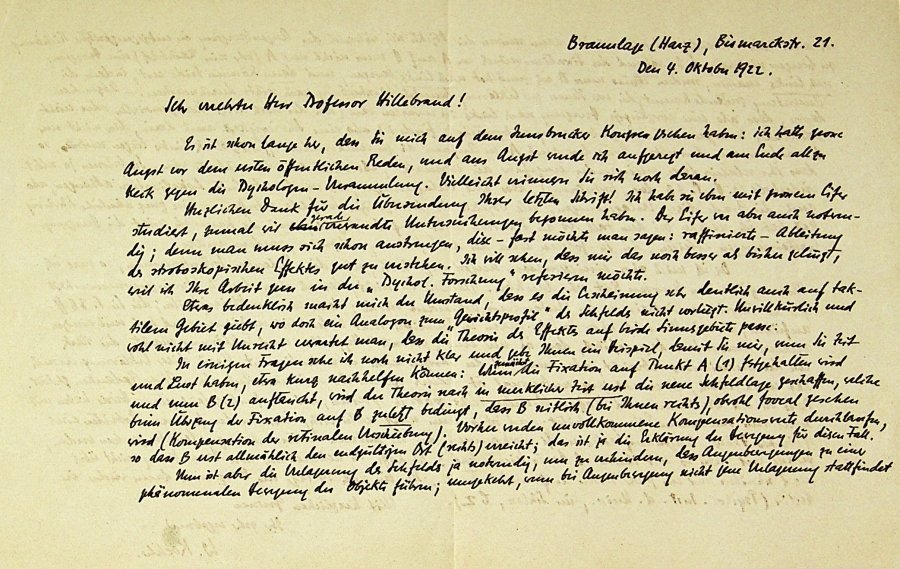 Braunlage (Harz), Bismarckstr. 21.
Den 4. Oktober 1922.
Sehr verehrter Herr Professor Hillebrand!
Es ist schon lange her, dass Sie mich auf dem Innsbrucker Kongress gesehen haben: ich hatte grosse
Angst vor dem ersten öffentlichen Reden, und aus Angst wurde ich aufgeregt und am Ende allzu
keck gegen die Psychologen-Versammlung. Vielleicht erinnern Sie sich noch daran.
Herzlichen Dank für die Übersendung Ihrer letzten Schrift! Ich habe sie eben mit grossem Eifer
studiert, zumal wir gerade verwandte Untersuchungen begonnen haben. Der Eifer war aber auch notwen-
dig; denn man muss sich schon anstrengen, diese - fast möchte man sagen: raffinierte - Ableitung
des stroboskopischen Effektes gut zu verstehen. Ich will sehen, dass mir das noch besser als bisher gelingt,
weil ich Ihre Arbeit gern in der „Psychol. Forschung" referieren möchte.
Etwas bedenklich macht mich der Umstand, dass es die Erscheinung sehr deutlich auch auf tak-
tilem Gebiet giebt, wo doch ein Analogon zum „Gewichtsprofil" des Sehfelds nicht vorliegt. Unwillkürlich und
wohl nicht mit Unrecht erwartet man, dass die Theorie des Effektes auf beide Sinnesgebiete passe.
In einigen Fragen sehe ich noch nicht klar und gebe Ihnen ein Beispiel, damit Sie mir, wenn Sie Zeit
und Lust haben, etwa kurz nachhelfen können: die Fixation auf Punkt A (1) festgehalten wird
und nun B (2) auftaucht, wird der Theorie nach in merklicher Zeit erst die neue Sehfeldlage geschaffen, welche
beim Übergang der Fixation auf B zuletzt bedingt, dass B seitlich (bei Ihnen rechts), obwohl foveal gesehen
wird (Kompensation der retinalen Verschiebung). Vorher werden unvollkommene Kompensationswerte durchlaufen,
so dass B erst allmählich den endgültigen Ort (rechts) erreicht; das ist ja die Erklärung der Bewegung für diesen Fall.
Nun ist aber die Verlagerung des Sehfelds ja notwendig, um zu verhindern, dass Augenbewegungen zu einer
phänomenalen Bewegung der Objekte führen; umgekehrt, wenn bei Augenbewegung nicht jene Verlagerung stattfindet